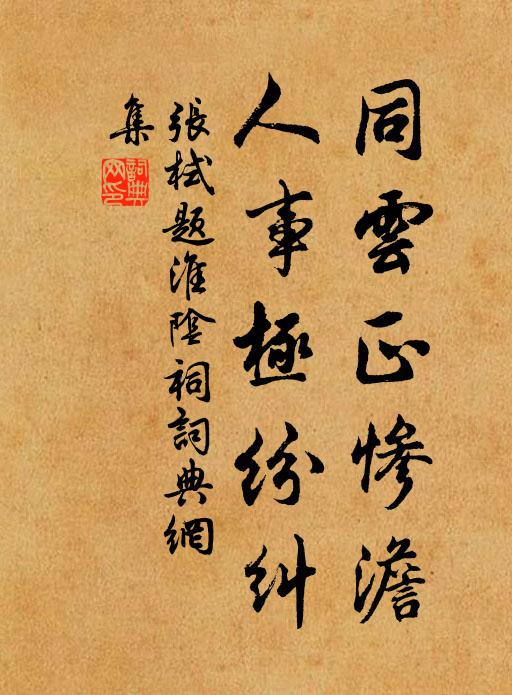 同雲正慘澹
人事極紛糾
張栻題淮陰祠詞典網
集
詞典
网印